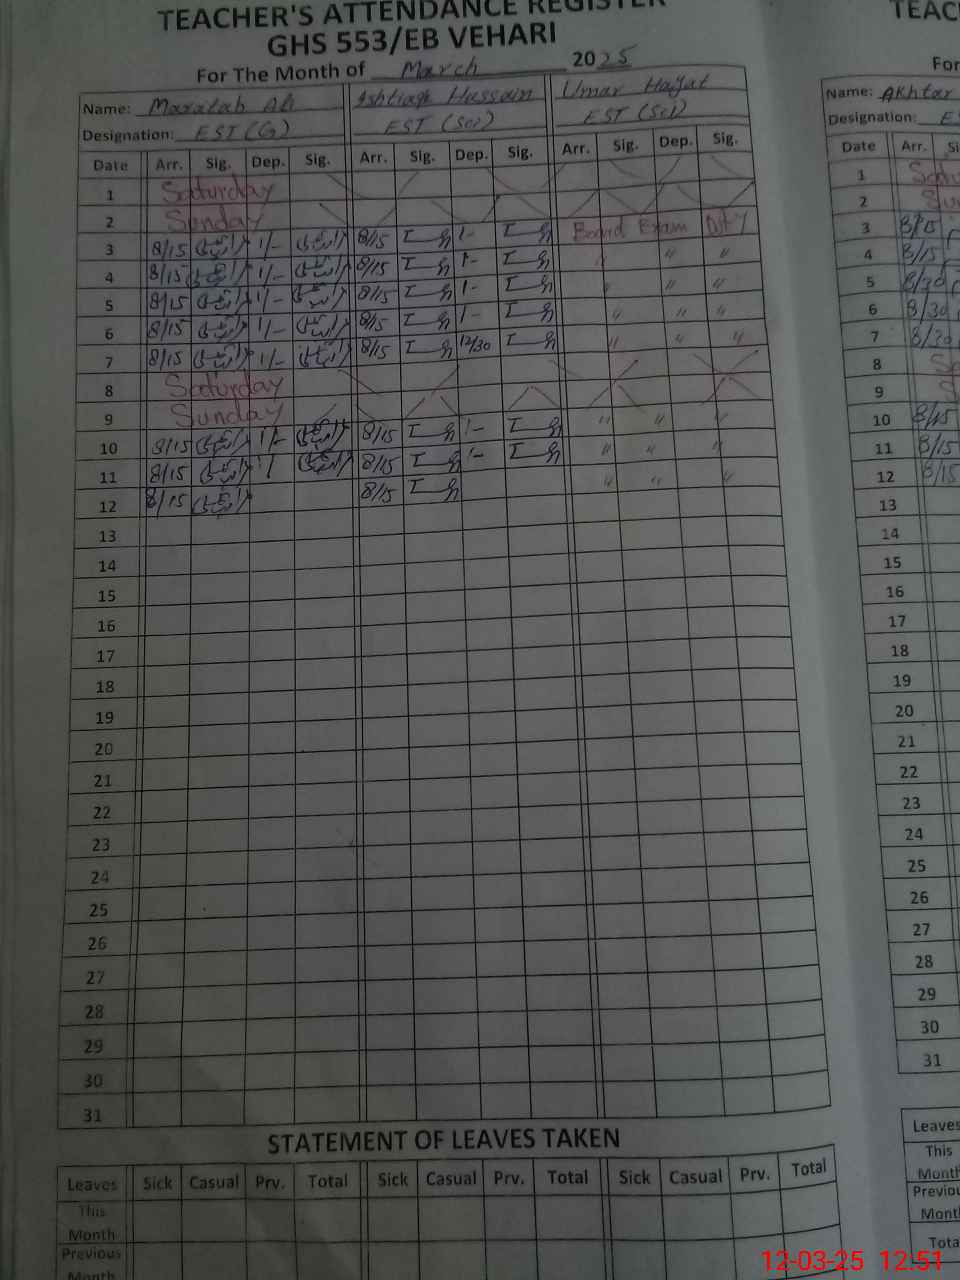 TEACHER'S ATTENDANCE REGISTER TEAC
GHS 553/EB VEHARI
For The Month of March 2025 For
Name: Maratab Ali Ishtiaq Hussain Umar Hayat Name: Akhtar
Designation: EST (G) EST (Sci) EST (Sci) Designation: E
Date Arr. Sig. Dep. Sig. Arr. Sig. Dep. Sig. Arr. Sig. Dep. Sig. Date Arr. Si
1 Saturday 1 Satu
2 Sunday 2 Sun
3 8/15 1/- 8/15 1- Board Exam Duty 3 8/15
4 8/15 1/- 8/15 1- " " 4 8/15
5 8/15 1/- 8/15 1- " " " 5 8/30
6 8/15 1/- 8/15 1- " " " 6 8/30
7 8/15 1/- 8/15 12/30 " " " 7 8/30
8 Saturday 8 Sa
9 Sunday 9 S
10 8/15 1/- 8/15 1- " " " 10 8/15
11 8/15 1/ 8/15 1- " " " 11 8/15
12 8/15 8/15 " " " 12 8/15
13 13
14 14
15 15
16 16
17 17
18 18
19 19
20 20
21 21
22 22
23 23
24 24
25 25
26 26
27 27
28 28
29 29
30 30
31 31
STATEMENT OF LEAVES TAKEN
Leaves Sick Casual Prv. Total Sick Casual Prv. Total Sick Casual Prv. Total Leaves
This Month This Month
Previous Month Previou Mont
Tota
12-03-25 12:51